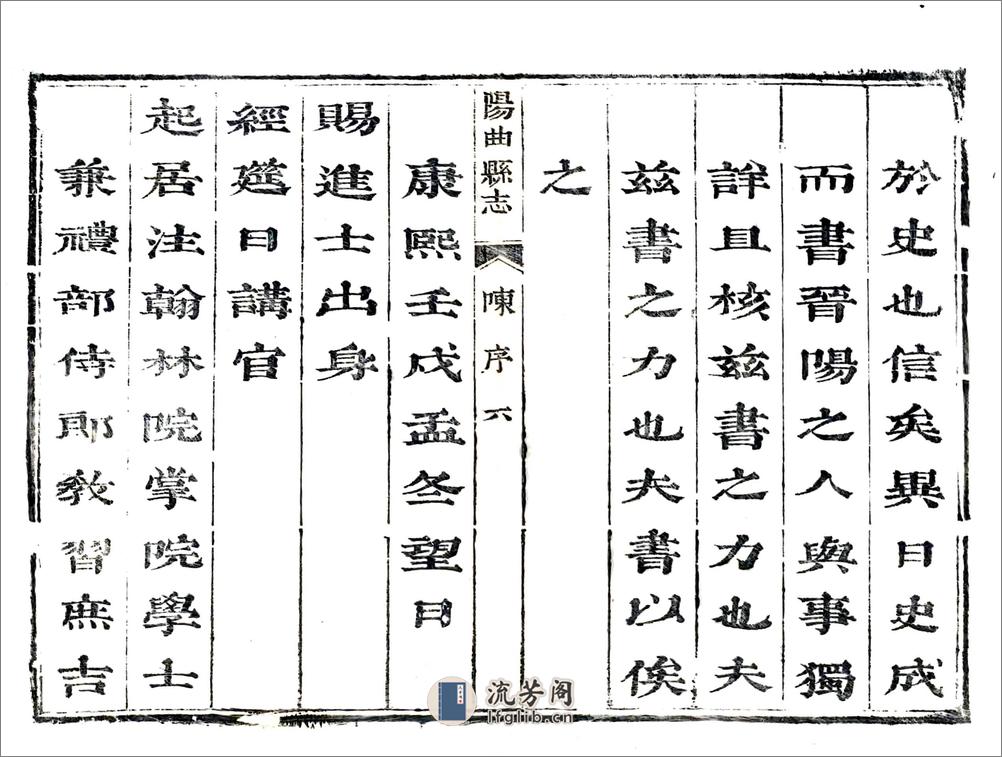 於史也信矣異日史成
而書晉陽之人與事獨
詳且核茲書之力也夫
茲書之力也夫書以俟
之
陽曲縣志 陳序 六
康熙壬戌孟冬望日
賜進士出身
經筵日講官
起居注翰林院掌院學士
兼禮部侍郎教習庶吉
流芳阁
lfglib.cn